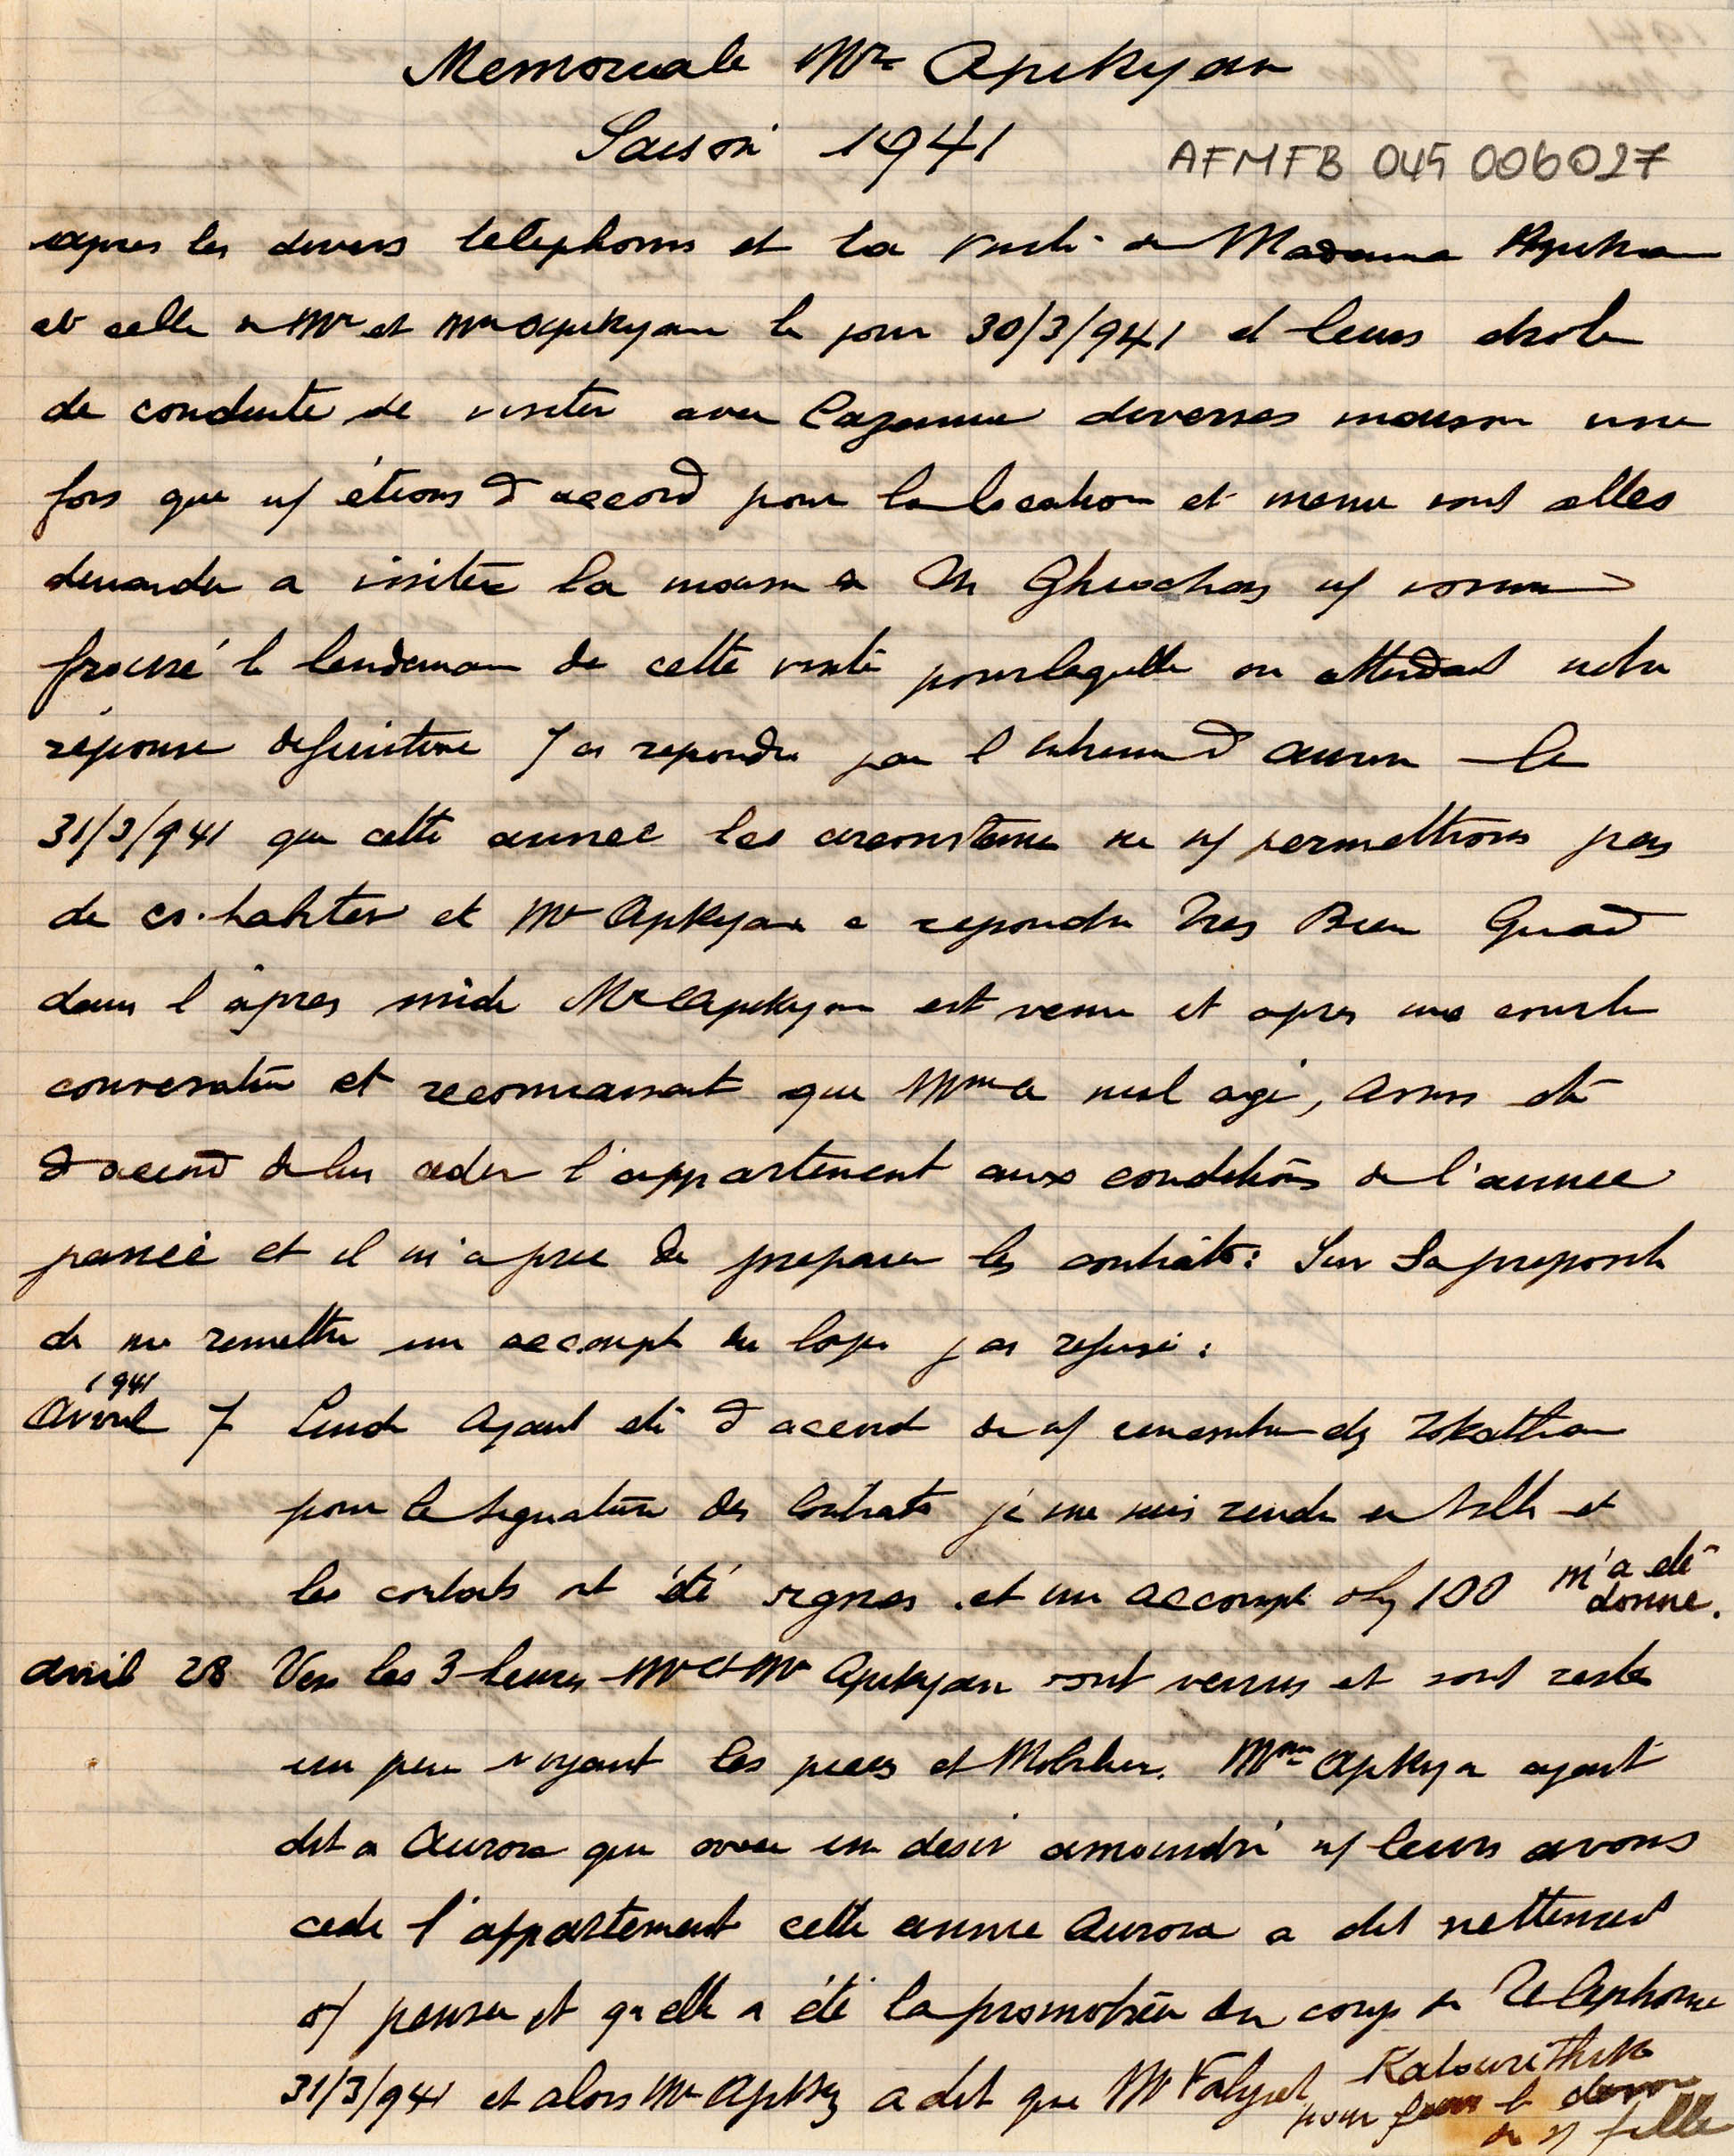 Memoriale Mr Apikyan
Saison 1941
AFMFB 045 006027
apres les divers telephons et la visite de Madame
et celle de Mr et Mme Apikyan le jour 30/3/941 et leurs drole
de conduite de visiter avec diverses maison une
fois que n/ étions d accord pour la location et meme sont alles
demander a visiter la maison a n/
froissé le lendemain de cette visite pour laquelle on attendait notre
réponse definitive J ai repondu par l d aurora le
31/3/941 que cette annee les circonstances ne n/ permettrons pas
de co.habiter et Mr Apikyan a repondu Tres Bien Quand
dans l apres midi Mr Apikyan est venu et apres une courte
conversation et reconnaissant que Mme a mal agi, avons été
d accord de lui ceder l'appartement aux conditions de l'annee
passeé et il m'a prie de preparer les contrats: Sur Sa proposite
de me remettre un accompt du loyer j ai refusé:
1941
Avril 7 Lundi Ayant été d acord de n/ chez
pour la signature des Contrats je me suis rendu en ville et
les contrats ont été signes et un accompt 100 m'a été
donne.
avril 28 Vers les 3 heures Mr et Me Apikyan sont venus et sont restes
un peu voyant les pieces et Mobilier. Mme Apikya ayant
dit a Aurora que avec un desir amoindri n/ leurs avons
cede l'appartement cette annee Aurora a dit nettement
penser et qu elle a été la promotrice du coup de Telephone
31/3/941 et alors Me Apiky a dit que Mr
pour
fille